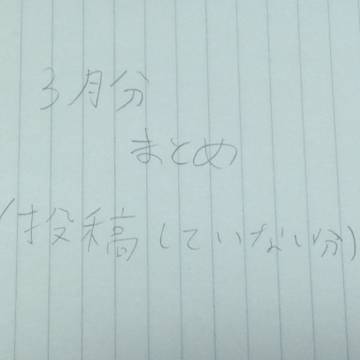 3月分
まとめ
(投稿していない分)